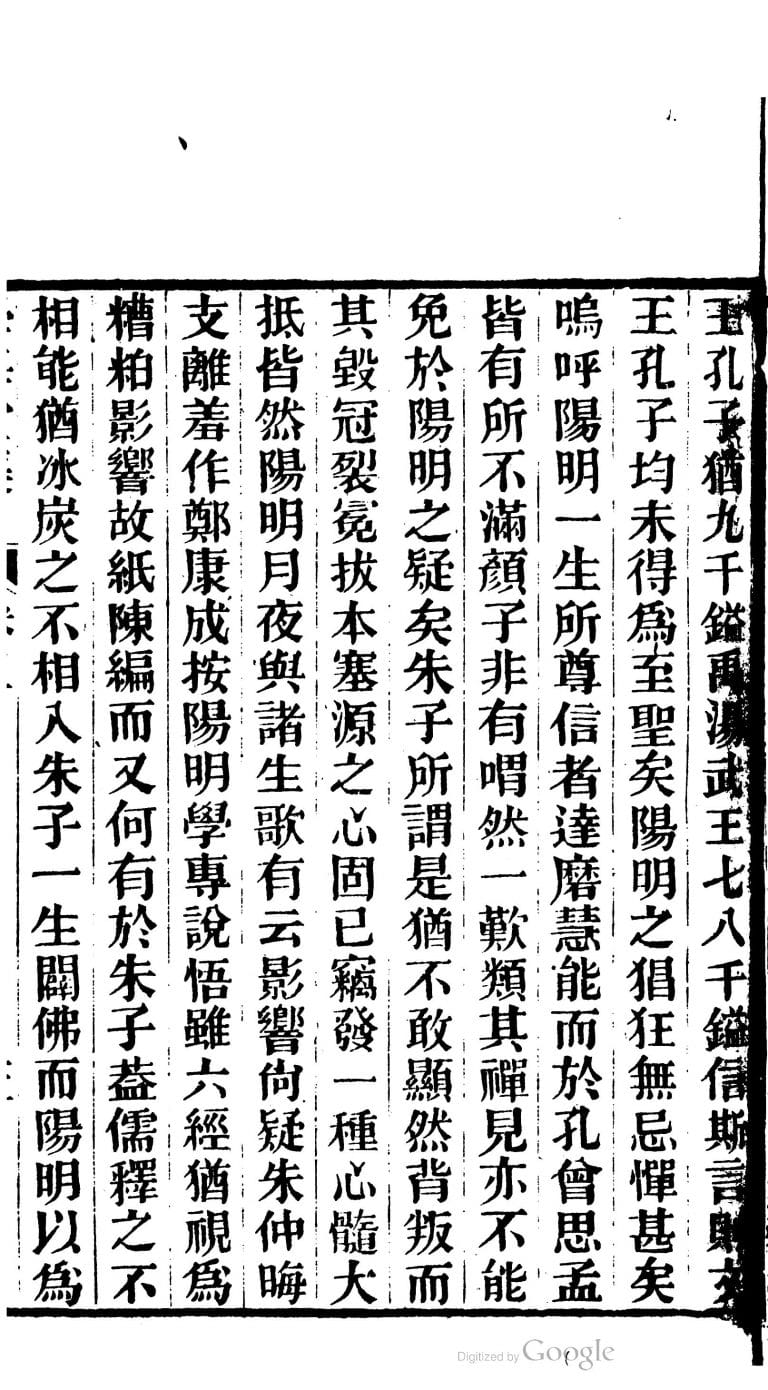 王孔子猶九千鎰禹湯武王七八千鎰信斯言則文
王孔子均未得爲至聖矣陽明之猖狂無忌憚甚矣
嗚呼陽明一生所尊信者達磨慧能而於孔曾思孟
皆有所不滿顏子非有喟然一歎類其禪見亦不能
免於陽明之疑矣朱子所謂是猶不敢顯然背叛而
其毀冠裂冕拔本塞源之心固已竊發一種心髓大
抵皆然陽明月夜與諸生歌有云影響尙疑朱仲晦
支離羞作鄭康成按陽明學專說悟雖六經猶視爲
糟粕影響故紙陳編而又何有於朱子葢儒釋之不
相能猶冰炭之不相入朱子一生闢佛而陽明以爲
Digitized by Google